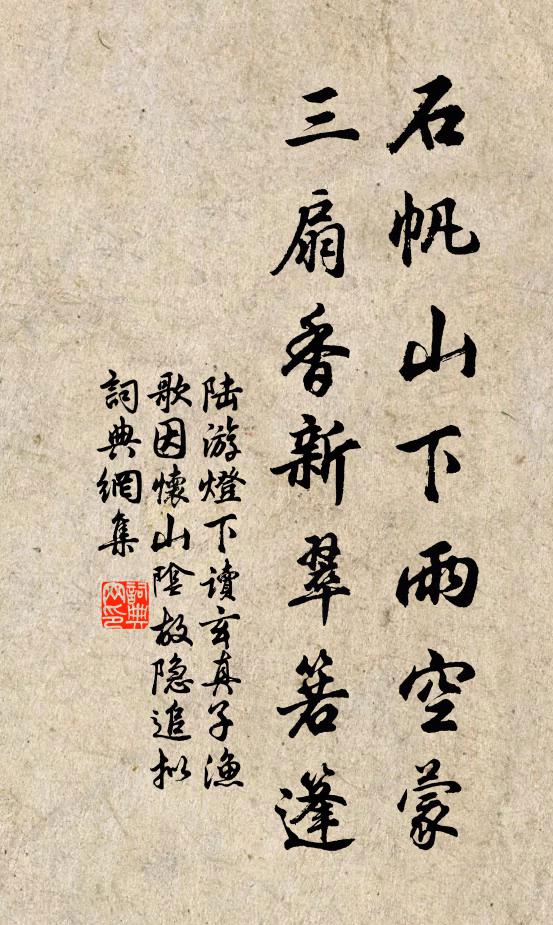 石帆山下雨空蒙
三扇香新翠箬篷
陆游燈下讀玄真子漁
歌因懷山陰故隐追拟
詞典網集
詞典
网印